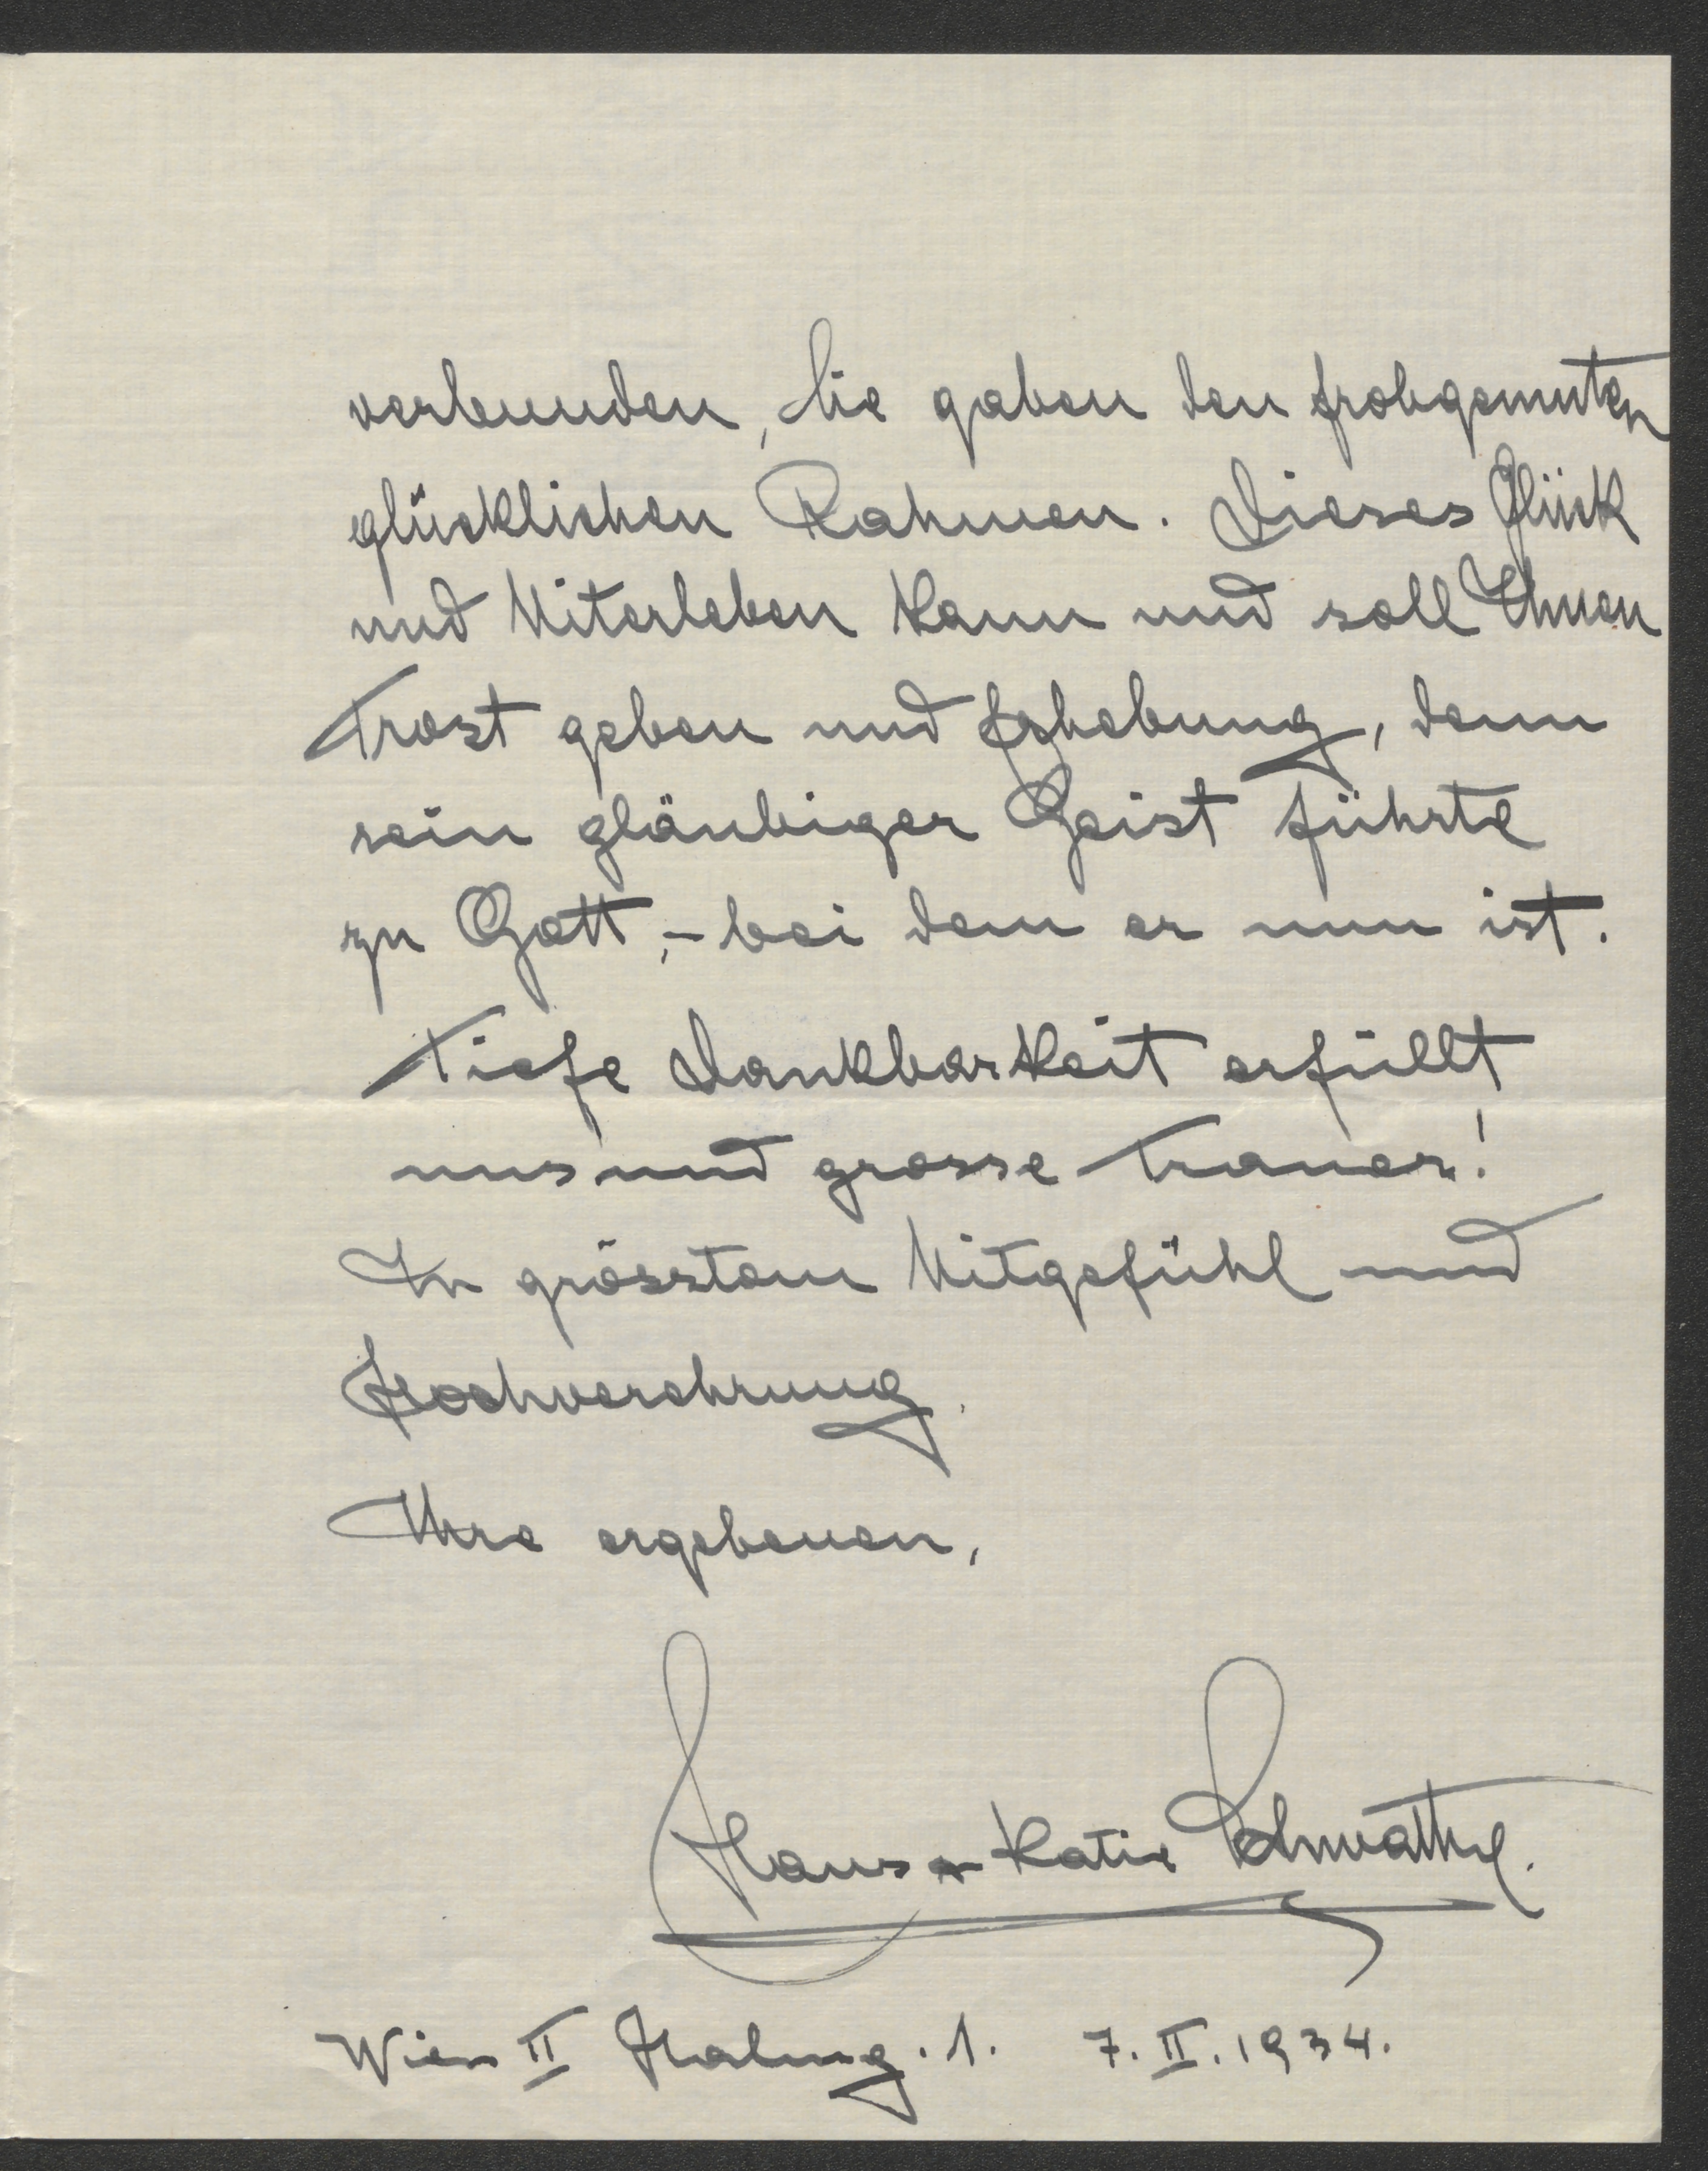 verbunden, Sie gaben den frohgemuten
glücklichen Rahmen. Dieses Glück
und Miterleben kann und soll Ihnen
Trost geben und Erhebung, denn
sein gläubiger Geist führte
zu Gott, - bei dem er nun ist.
Tiefe Dankbarkeit erfüllt
uns und grosse Trauer!
In grösstem Mitgefühl und
Hochverehrung.
Ihre ergebenen,
Hans & Katie Schwathe.
Wien II 1. 7. II. 1934.